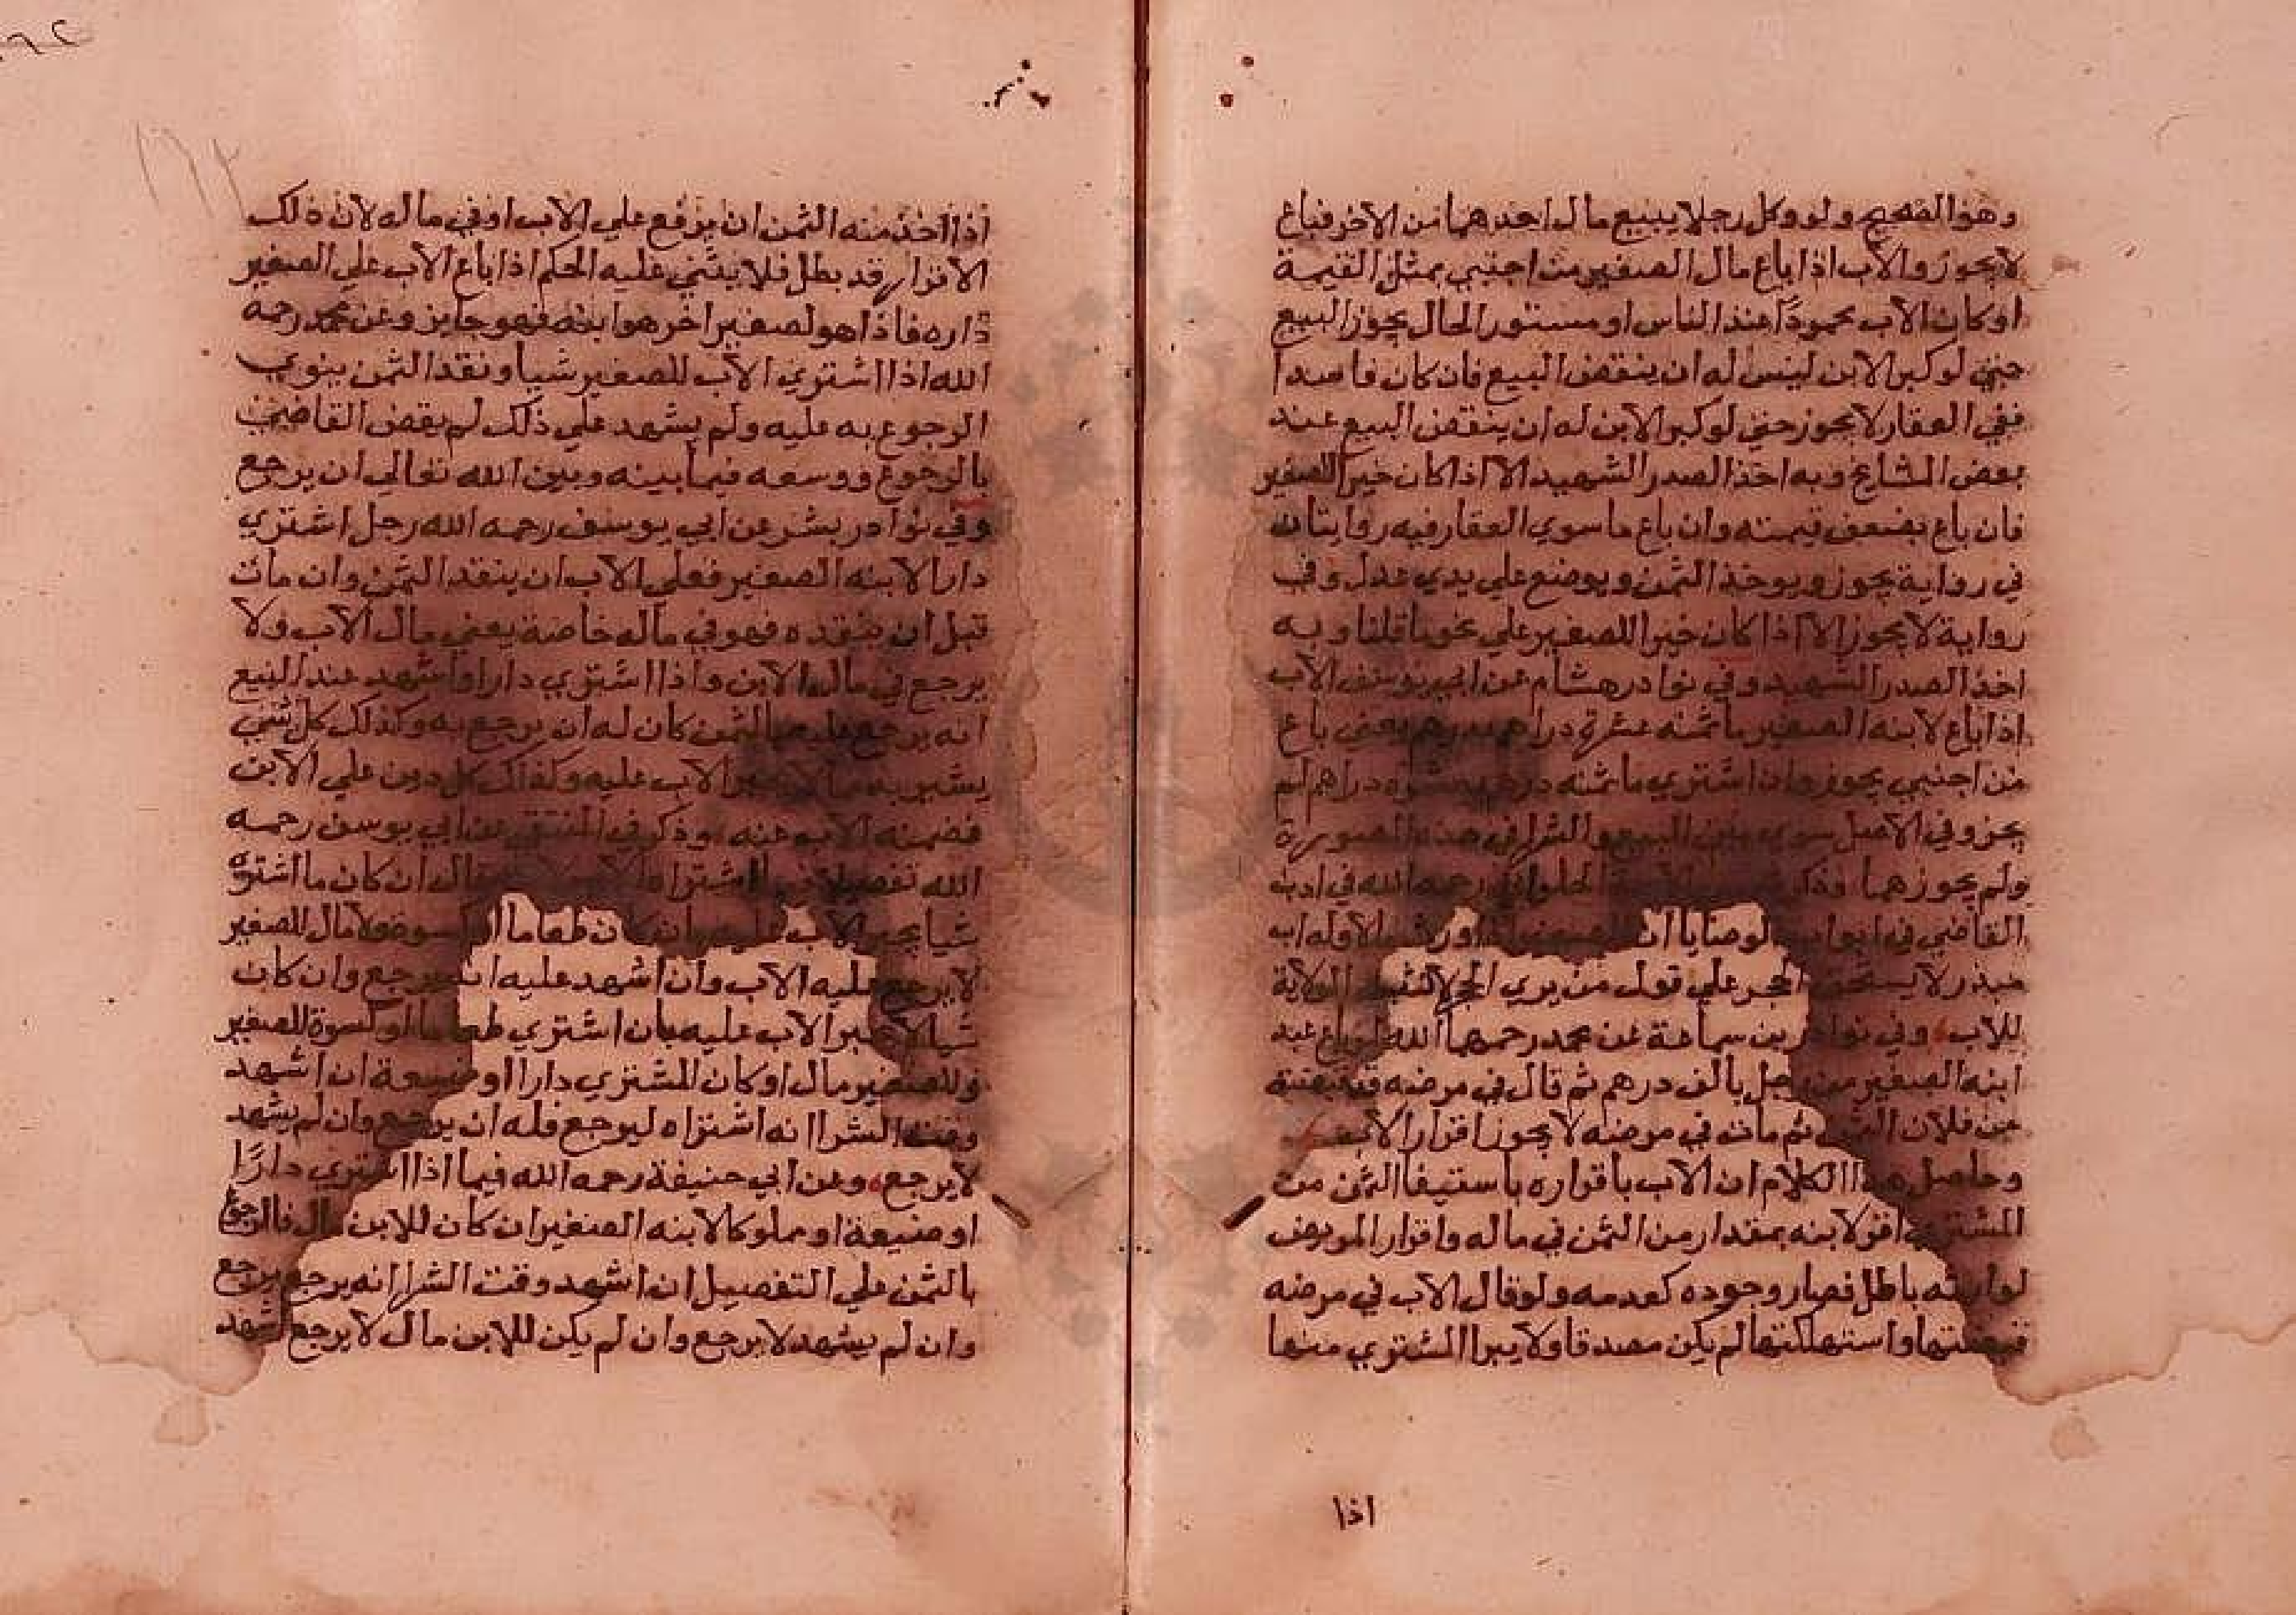 وهو الصحيح ولو وكل رجلا يبيع مال احدهما من الاخر فباع
لا يجوز والاب اذا باع مال الصغير من اجنبي بمثل القيمة
او كان الاب محمودا عند الناس او مستور الحال يجوز البيع
حتي لو كبر الابن ليس له ان ينقض البيع فان كان فاسدا
ففي العقار لا يجوز حتي لو كبر الابن له ان ينقض البيع عند
بعض المشايخ وبه اخذ الصدر الشهيد الا اذا كان خيرا للصغير
فان باع بضعف قيمته وان باع ما سوي العقار فيه روايتان
في رواية يجوز ويوخذ الثمن ويوضع علي يدي عدل وفي
رواية لا يجوز الا اذا كان خيرا للصغير علي نحو ما قلنا وبه
اخذ الصدر الشهيد وفي نوادر هشام عن ابي يوسف الاب
اذا باع لابنه الصغير ما ثمنه عشرة دراهم بدرهم يعني باع
من اجنبي يجوز وان اشتري ما ثمنه درهم بعشرة دراهم لم
يجز وفي الاصل سوي بين البيع والشرا في هذه الصورة
ولم يجوزهما وذكر الحلواني رحمه الله في ادب
القاضي في ابواب الوصايا ان الاوله اب
مبذر لا يستحق الحجر علي قول من يري الحجر الولاية
للاب وفي نوادر بن سماعة عن محمد رحمهما الله لو باع عبد
ابنه الصغير من رجل بالف درهم ثم قال في مرضه قد قبضته
من فلان الثمن ثم مات في مرضه لا يجوز اقرار الاب
وحاصل هذا الكلام ان الاب باقراره باستيفا الثمن من
المشتري اقر لابنه بمقدار من الثمن في ماله واقرار المريض
لوارثه باطل فصار وجوده كعدمه ولو قال الاب في مرضه
قبضتها واستهلكتها لم يكن مصدقا ولا يبرا المشتري منها
اذا
اذا اخذ منه الثمن ان يرفع علي الاب او في ماله لان ذلك
الاقرار قد بطل فلا يبتني عليه الحكم اذا باع الاب علي الصغير
داره فاذا هو لصغير اخر هو ابنه فهو جايز وعن محمد رحمه
الله اذا اشتري الاب للصغير شيا ونقد الثمن ينوي
الرجوع به عليه ولم يشهد علي ذلك لم يقض القاضي
بالرجوع ووسعه فيما بينه وبين الله تعالي ان يرجع
وفي نوادر بشر عن ابي يوسف رحمه الله رجل اشتري
دارا لابنه الصغير فعلي الاب ان ينقد الثمن وان مات
قبل ان ينقده فهو في ماله خاصة يعني مال الاب ولا
يرجع في مال الابن واذا اشتري دارا واشهد عند البيع
انه يرجع عليه بالثمن كان له ان يرجع به وكذلك كل شي
يشتريه مما لا يجبر الاب عليه وكذلك كل دين علي الابن
فضمنه الاب عنه وذكر في المنتقي عن ابي يوسف رحمه
الله تفصيلا فيما اشتراه فقال ان كان ما اشتره
شيا يجبر الاب عليه بان كان طعاما او كسوة ولا مال للصغير
لا يرجع عليه الاب وان اشهد عليه انه يرجع وان كان
شيا لا يجبر الاب عليه بان اشتري طعاما او كسوة للصغير
وللصغير مال او كان المشتري دارا او ضيعة ان اشهد
وقت الشرا انه اشتراه ليرجع فله ان يرجع وان لم يشهد
لا يرجع وعن ابي حنيفة رحمه الله فيما اذا اشتري دارًا
او ضيعة او مملوكا لابنه الصغير ان كان للابن مال فالرجوع
بالثمن علي التفصيل ان اشهد وقت الشرا انه يرجع يرجع
وان لم يشهد لا يرجع وان لم يكن للابن مال لا يرجع اشهد